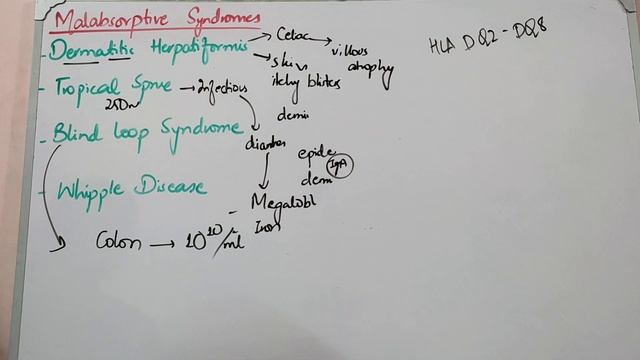 Malabsorptive Syndromes
- Dermatitic Herpatiformis → Celac → villous atrophy
→ skin itchy blisters
HLA DQ2 - DQ8
- Tropical Sprue → Infectious
demis
- Blind Loop Syndrome
diarrhea
epide
IgA
demi
- Whipple Disease
- Megalobl
Iron
Colon → 10^10/ml